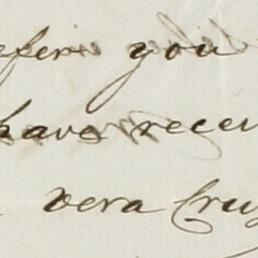 refer you
have recei
Vera Cruz